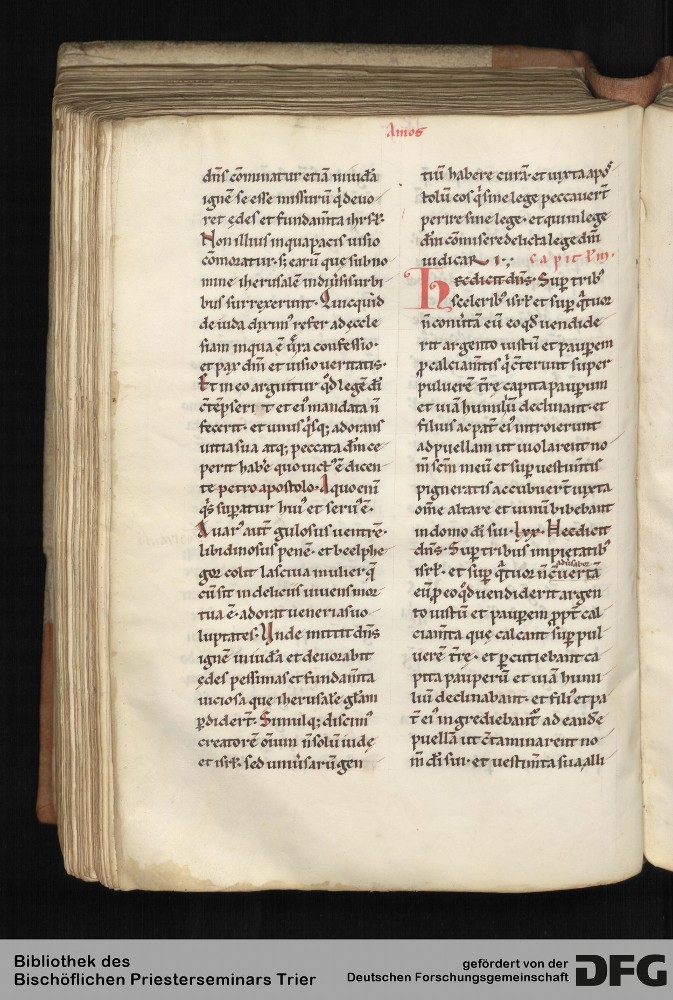 Amos
dn̄s cōminatur etiā in iudā
ignē se esse missurū q̇ deuo
ret ędes et fundam̄ta ihrsl̄.
Non illius in qua pacis uisio
cōmoratur. s; earū que sub no
mine iherusalē in diuisis urbi
bus surrexerunt. Quicquid
de iuda diximꝰ refer ad eccle
siam in qua ē ūra confessio.
et pax dn̄i et uisio ueritatis.
Et in eo arguitur q̇d legē dī
et eiꝰ mandata n̄
fecerit. et unusq̇sq; adorans
uitia sua atq; peccata dn̄m ce
perit hab̄e quo uictꝰ ē dicen
te petro apostolo. A quo eni
q̇s supatur huiꝰ et seruꝰ ē.
Auarꝰ aut̄ gulosus uentrē.
libidinosus penē. et beelphe
gor colit lasciua mulier q̄
cū sit in deliciis uiuens mor
tua ē. adorat ueneria suo
luptates. Unde mittit dn̄s
ignē in iudā et deuorabit
ędes pessimas et fundam̄ta
uiciosa que iherusalē gl̄am
pdidert̄. Simulq; discimꝰ
creatorē om̄ium n̄ solū iudę
et isrl̄. sed uniūsarū gen
tiū habere curā. et iuxta apo
stolū eos q̇ sine lege peccauert̄
perire sine lege. et qui in lege
dn̄m cōmisere delicta lege dn̄i
iudicari. capitl̄m.
Hec dicit dn̄s. Sup tribꝰ
sceleribꝰ isrl̄ et sup q̄tuor
n̄ conūtā eū eo qd̄ uendide
rit argento iustū et paupem
p calciam̄tis q̇ c̄terunt super
puluerē tr̄e capita paupum
et uiā humiliū declinant. et
filius ac pat̄ eiꝰ introierunt
ad puellam ut uiolarent no
m̄ scm̄ meū et sup uestim̄tis
pigneratis accubuert̄ iuxta
om̄e altare et uinū bibebant
in domo dī sui. lxx. Hec dicit
dn̄s. Sup tribus impietatibꝰ
isrl̄. et sup q̄tuor n̄ c̄uertā
aduersabor
eū p eo qd̄ uendiderit argen
to iustū et paupem ppt̄ cal
ciam̄ta que calcant sup pul
uerē tr̄e. et pcutiebant ca
pita pauperū et uiā humi
liū declinabant. et filiꝰ et pa
t̄ eiꝰ ingrediebant᷑ ad eandē
puellā ut c̄taminarent no
m̄ dī sui. et uestim̄ta sua alli
Bibliothek des
Bischöflichen Priesterseminars Trier
gefördert von der
Deutschen Forschungsgemeinschaft
DFG